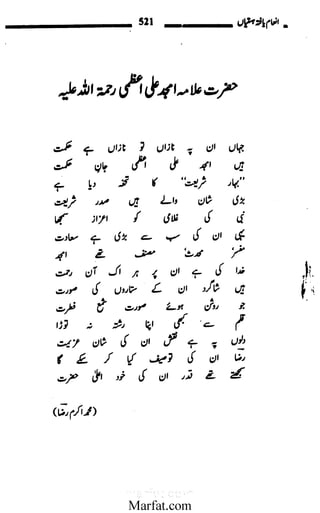 انعام یافتہ ہستیاں 521
حضرت علامہ امجد علی اعظمی رحمۃ اللہ علیہ
جہاں ان پہ نازاں تو نازاں ہے حکمت
ہیں امجد علی اعظمی جانِ حکمت
"بہارِ شریعت" کا تحفہ دیا ہے
بڑی شان والے ہیں صدرِ شریعت
نبی کی غلامی کو اعزاز سمجھا
یہی ان کی سب سے بڑی ہے سعادت
مفسر محدث مصنف تھے امجد
خدا کی ہے ان پر ہر اک آن رحمت
ہیں شاگرد ان کے ستاروں کی صورت
جو روشن ہوئے صورتِ شمع فطرت
قلم سے کبھی اپنا رشتہ نہ توڑا
دلوں پہ ہے نقش ان کی شانِ عزیمت
رضا ان کی توصیف کیا کر سکے گا
سمجھتے تھے قدر ان کی خود اعلیٰ حضرت
(محمد اکرم رضا)
Marfat.com